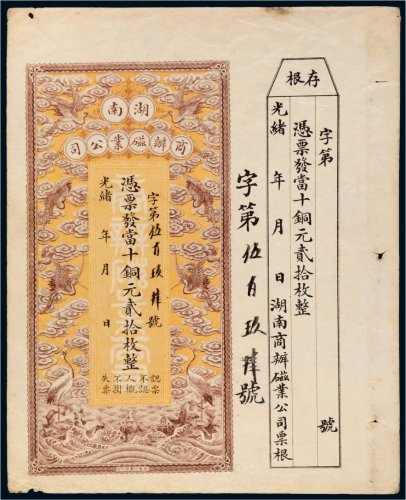 存根
字第 號
憑票發當十銅元貳拾枚整
光緒 年 月 日湖南商辦磁業公司票根
字第伍百玖肆號
湖南
商辦磁業公司
字第伍百玖肆號
憑票發當十銅元貳拾枚整
光緒 年 月 日
認票
不認
人概
不掛
失票